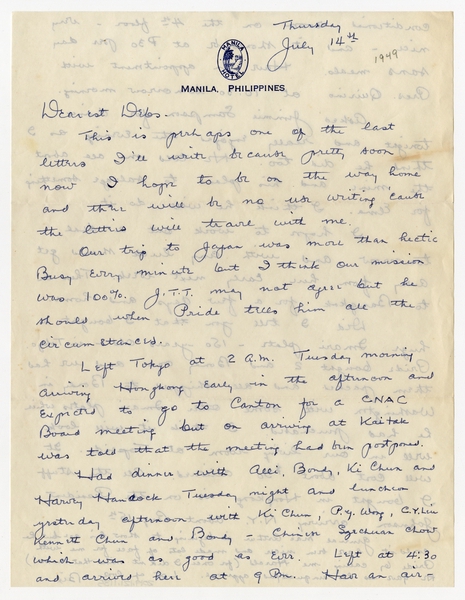 Thursday
July 14th
1949
MANILA HOTEL
MANILA, PHILIPPINES
Dearest Debs.
This is perhaps one of the last
letters I'll write because pretty soon
now I hope to be on the way home
and there will be no use writing cause
the letters will travel with me.
Our trip to Japan was more than hectic
Busy every minute but I think our mission
was 100%. J.T.T. may not agree but he
should when Pride tells him all the
circumstances.
Left Tokyo at 2 A.M. Tuesday morning
arriving Hongkong early in the afternoon and
expected to go to Canton for a CNAC
Board meeting but on arriving at Kai Tak
was told that the meeting had been postponed.
Had dinner with Alli, Bondy, Ki Chun and
Harvey Handock Tuesday night and luncheon
yesterday afternoon with Ki Chun, P.Y. Wong, C.Y. Liu
Kennett Chun and Bondy – Chinese Szechuan chow
which was as good as ever. Left at 4:30
and arrived here at 9 Pm. Have an air-